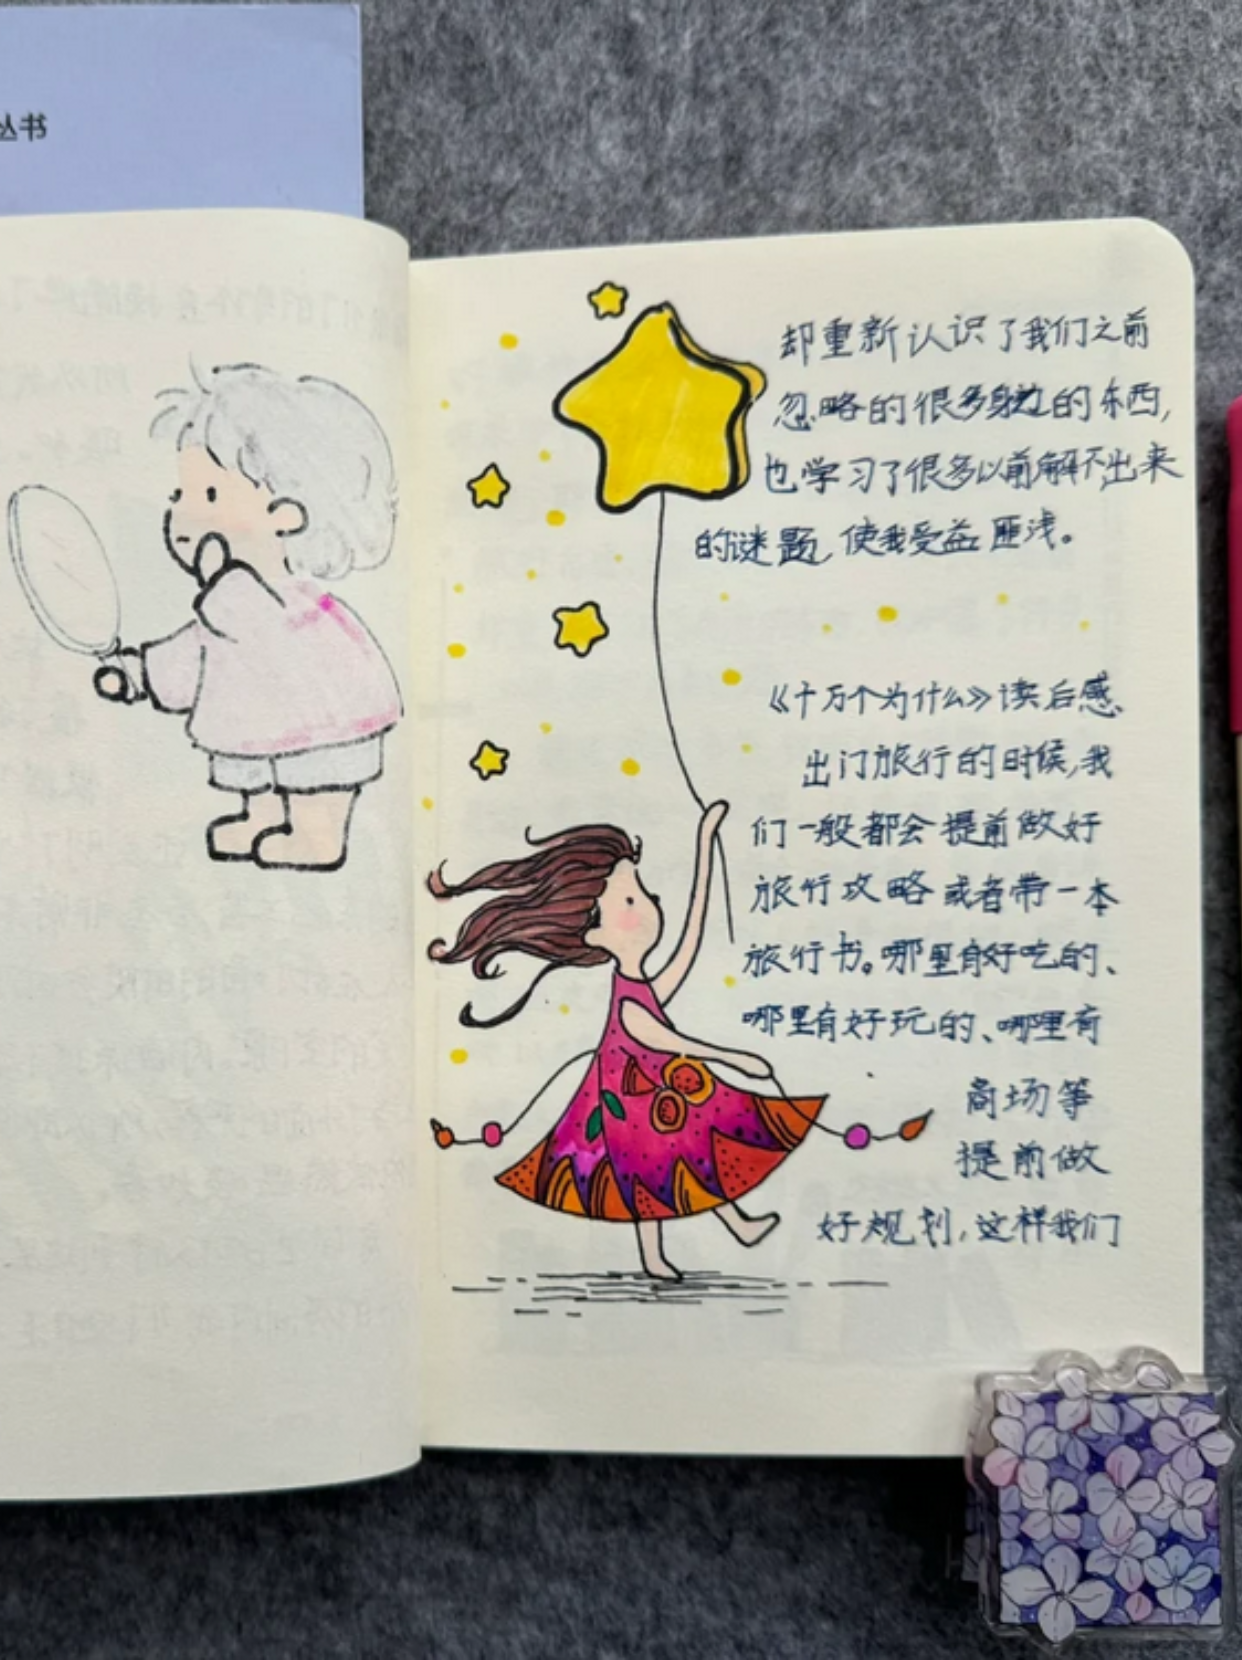 丛书
却重新认识了我们之前
忽略的很多身边的东西,
也学习了很多以前解不出来
的谜题,使我受益匪浅。
《十万个为什么》读后感
出门旅行的时候,我
们一般都会提前做好
旅行攻略或者带一本
旅行书。哪里有好吃的、
哪里有好玩的、哪里有
商场等
提前做
好规划,这样我们